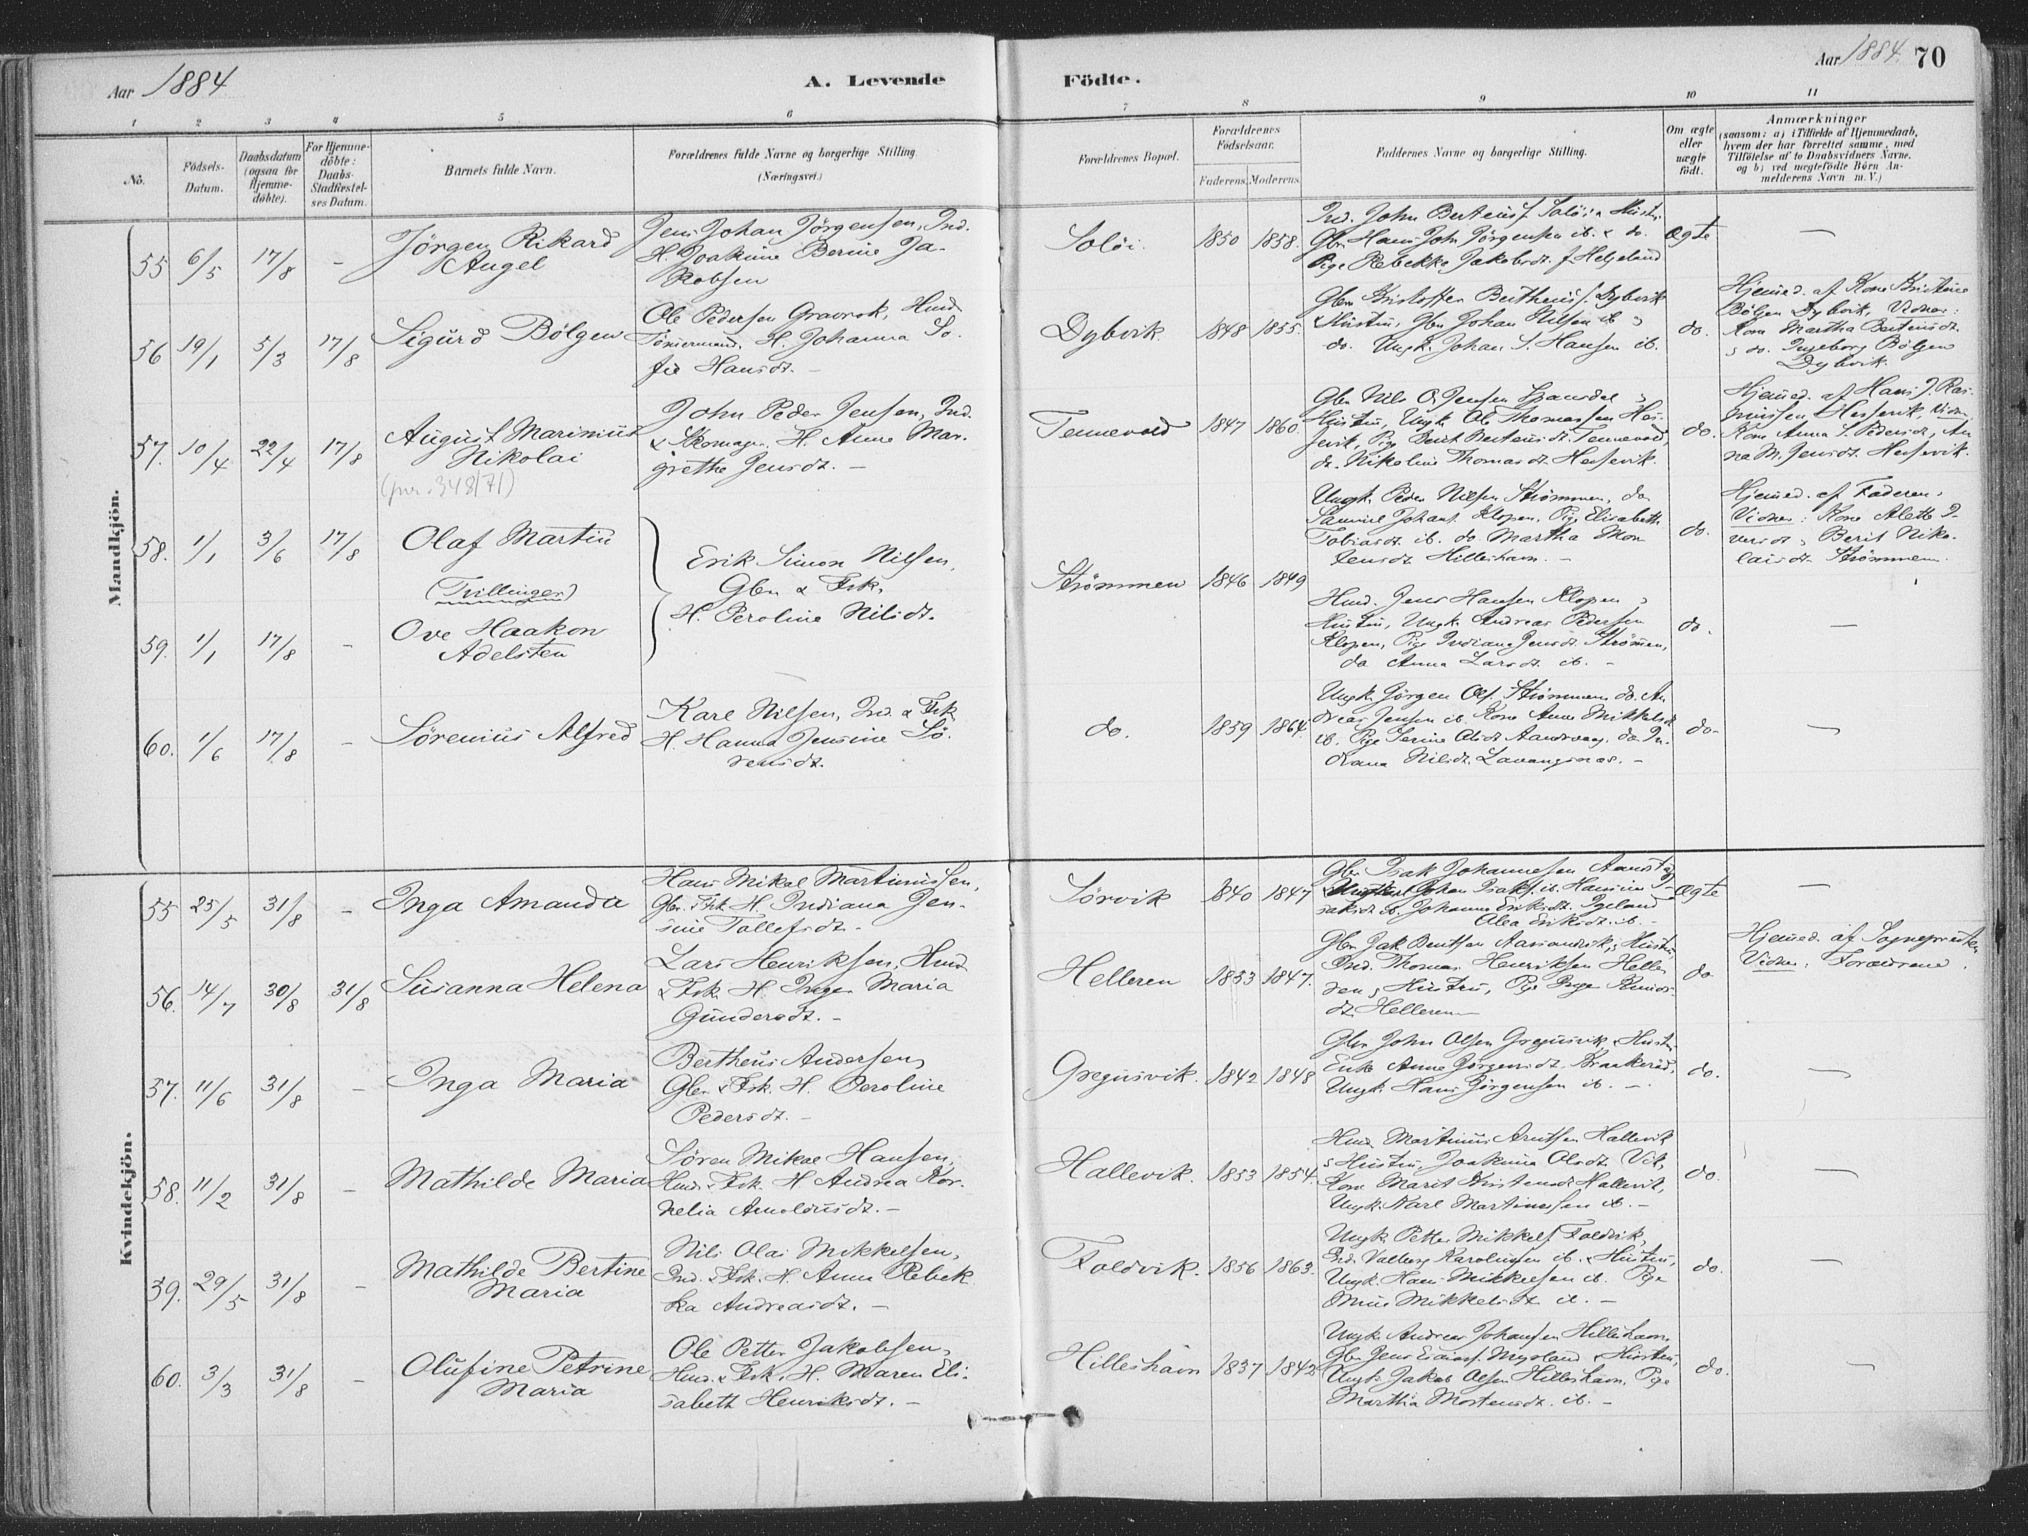 Aar 1884
A. Levende
Födte.
Aar 1884. 70
1 2 3 4 5 6 7 8 9 10 11
No.
Födsels-
Datum.
Daabsdatum
(ogsaa for
Hjemme-
døbte).
For Hjemme-
döbte:
Daabs-
Stadfæstel-
ses Datum.
Barnets fulde Navn.
Forældrenes fulde Navne og borgerlige Stilling
(Næringsvei.)
Forældrenes Bopæl.
Forældrenes
Fødselsaar.
Faderens. Moderens.
Faddernes Navne og borgerlige Stilling.
Om ægte
eller
uægte
födt.
Anmærkninger
(saasom: a) i Tilfælde af Hjemmedaab,
hvem der har forrettet samme, med
Tilföielse af to Daabsvidners Navne,
og b) ved uægtefödte Börn An-
melderens Navn m. V.)
Mandkjön.
55 6/5 17/8 -
Jörgen Rikard
Angel
Jens Johan Jörgensen, Ind.
H. Joakime Berine Ja-
kobsen
Soløi 1850 1858.
Ind. John Berteusf. Soløi & Hustru
Gbr. Hans John Jörgensen ib. & do.
Pige Rebekka Jakobsdt. f. Helgeland
Ægte —
56 19/1 5/3 17/8
Sigurd Bölgen
Ole Pedersen Gravrok, Husd.
Tömmermand. H. Johanna So-
fie Hansdt. -
Dybvik 1848 1855.
Gbr. Kristoffer Bertheusf. Dybvik
& Hustru, Gbr. Johan Nilsen ib &
do. Ungk. Johan S. Hansen ib.
do.
Hjemmed. af Kone Kristine
Bölgen Dybvik, Vidner:
Kone Martha Berteusdt.
& do. Ingeborg Bölgen
Dybvik.
57. 10/4 22/4 17/8
August Marinius
Nikolai
(jnr. 348/71)
John Peder Jensen, Ind.
& Skomager, H. Anne Mar-
grethe Jensdt. -
Tennevold 1847 1860.
Gbr. Nils O. Jensen Spansdal &
Hustru, Ungk. Ole Thomassen Hes-
jevik, Pige Berit Berteusdt. Tennevold,
do. Nikoline Thomasdt. Hesjevik.
do.
Hjemmed. af Hans J. Ras-
mussen Hesjevik, Vidn.
Kone Anna S. Pedersdt., An-
na M. Jensdt. Hesjevik.
58. 1/1 3/6 17/8
Olaf Martin
(Tvillinger)
Erik Simon Nilsen,
Gbr. & Fisk.
H. Peroline Nilsdt.
Strømmen 1846 1849
Ungk. Peder Nilsen Strømmen, do
Samuel Johans. Klopen, Pige Elisabeth
Tobiasdt. ib. do Martha Mor-
tensdt. Hilleshavn. -
do.
Hjemmed. af Faderen,
Vidner: Kone Alette I-
versdt & Berit Niko-
laisdt. Strømmen.
59. 1/1 17/8 -
Ove Haakon
Adelsten
Husd. Jens Hansen Klopen &
Hustru, Ungk. Andreas Pedersen
Klopen, Pige Indiana Jensdt. Strømmen,
do Anna Larsdt. ib. -
do. —
60. 1/6 17/8 -
Sörenius Alfred
Karl Nilsen, Ind. & Fisk
H. Hanna Jensine Sö-
rensdt.
do. 1859 1864.
Ungk. Jörgen Olsf. Strømmen, do. An-
dreas Jensen ib. Kone Anne Mikkelsdt.
ib. Pige Serine Olsdt. Aandsvaag, do In-
diana Nilsdt. Lavangsnæs. -
do. —
Kvindekjön.
55 25/5 31/8 -
Inga Amanda
Hans Mikal Martinussen,
Gbr. Fisk. H. Indiana Jen-
sine Tollefsdt.
Sörvik 1840 1847
Gbr. Isak Johannesen Aanstad
Johan Isaks. ib. Hansine I-
saksdt. ib. Johanna Eriksdt. Igeland
Olea Eriksdt. ib. -
Ægte —
56. 14/7 30/8 31/8
Susanna Helena
Lars Henriksen, Husd.
& Fisk. H. Inger Maria
Gundersdt. -
Helleren 1853 1847.
Gbr. Jak. Bentsen & Hustru
Ind. Thomas Henriksen Helle-
ren & Hustru, Pige Inger Knuds-
dt. Helleren
do
Hjemmed. af Sognepresten
Vidner. Forældrene
57. 11/6 31/8 -
Inga Maria
Bertheus Andersen,
Gbr. & Fisk. H. Peroline
Pedersdt. -
Gregusvik. 1842 1848
Gbr. John Olsen Gregusvik & Hustru,
Enke Anne Jörgensdt. Brækkeröd,
Ungk. Hans Jörgensen ib. -
do. —
58. 11/2 31/8 -
Mathilde Maria
Sören Mikal Hansen,
Husd. & Fisk. H Andrea Kor-
nelia Arnoldusdt. -
Hallevik. 1853 1854.
Husd. Martinus Arntsen Hallevik
& Hustru, Joakima Olsdt. Vik,
Kone Marit Kristensdt Hallevik,
Ungk. Karl Martinussen ib. -
do. —
59. 29/5 31/8 -
Mathilde Bertine
Maria
Nils Olai Mikkelsen,
Ind. & Fisk. H. Anna Rebek-
ka Andreasdt. -
Foldvik. 1856 1863.
Ungk. Petter Mikkels. Foldvik,
Ind. Valberg Karolinsen ib. & Hustru,
Ungk. Hans Mikkelsen ib. Pige
Mikkelsdt. ib. -
do. —
60. 3/3 31/8 -
Olufine Petrine
Maria
Ole Petter Jakobsen,
Husd. & Fisk. H. Maren Eli-
sabeth Henriksdt. -
Hilleshavn 1837 1842
Ungk. Andreas Johansen Hilleshavn,
Gbr. Jens Nysland & Hustru,
Ungk. Jakob Olsen Hilleshavn, Pige
Martha Mortensdt. ib. -
do. —